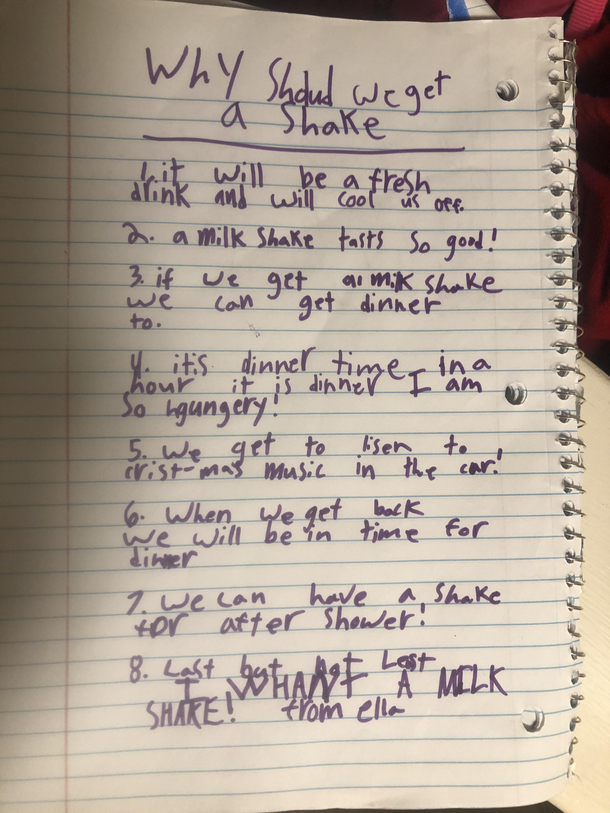 Why Shoud we get
a Shake
1. it will be a fresh
drink and will cool us off.
2. a milk shake tasts so good!
3. if we get a milk shake
we can get dinner
to.
4. it's dinner time in a
hour it is dinner I am
so hgungery!
5. we get to lisen to
crist-mas music in the car!
6. When we get back
we will be in time for
dinner
7. we can have a shake
for after shower!
8. Last but not Lest
I WHANT A MILK
SHAKE! from ella